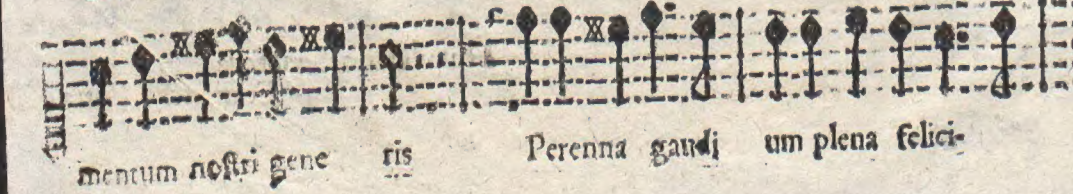 mentum nostri gene ris Perenna gaudi um plena felici-